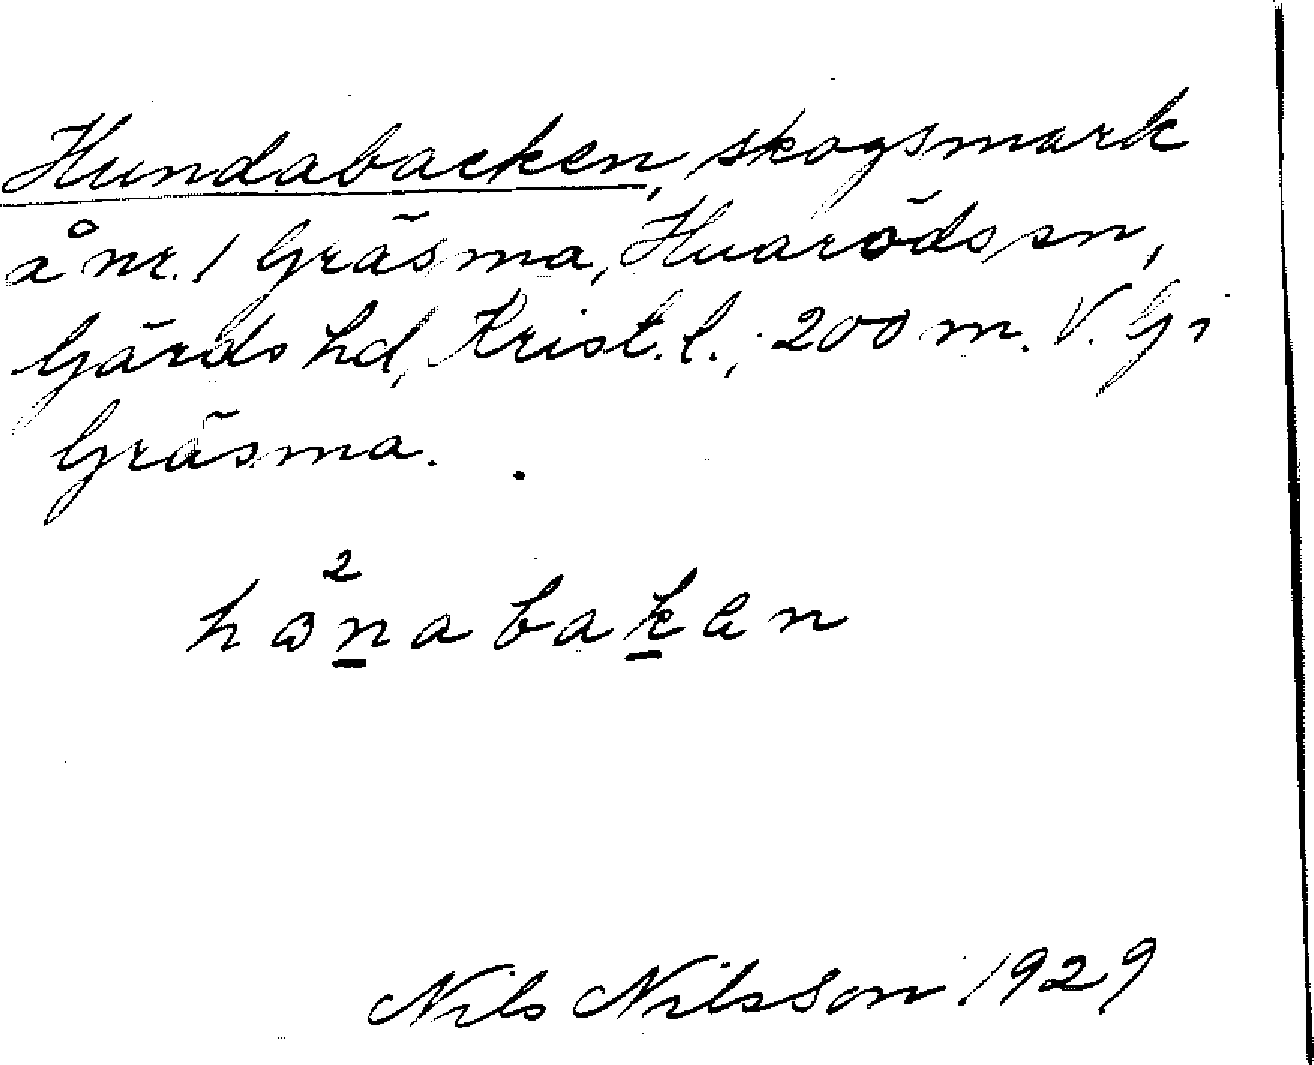 Hundabacken, skogsmark
å nr. 1 Gräsma, Huaröds sn,
Gärds hd, Krist. l.; 200 m. V. Gi
Gräsma.
2
hɷnabaken
Nils Nilsson 1929